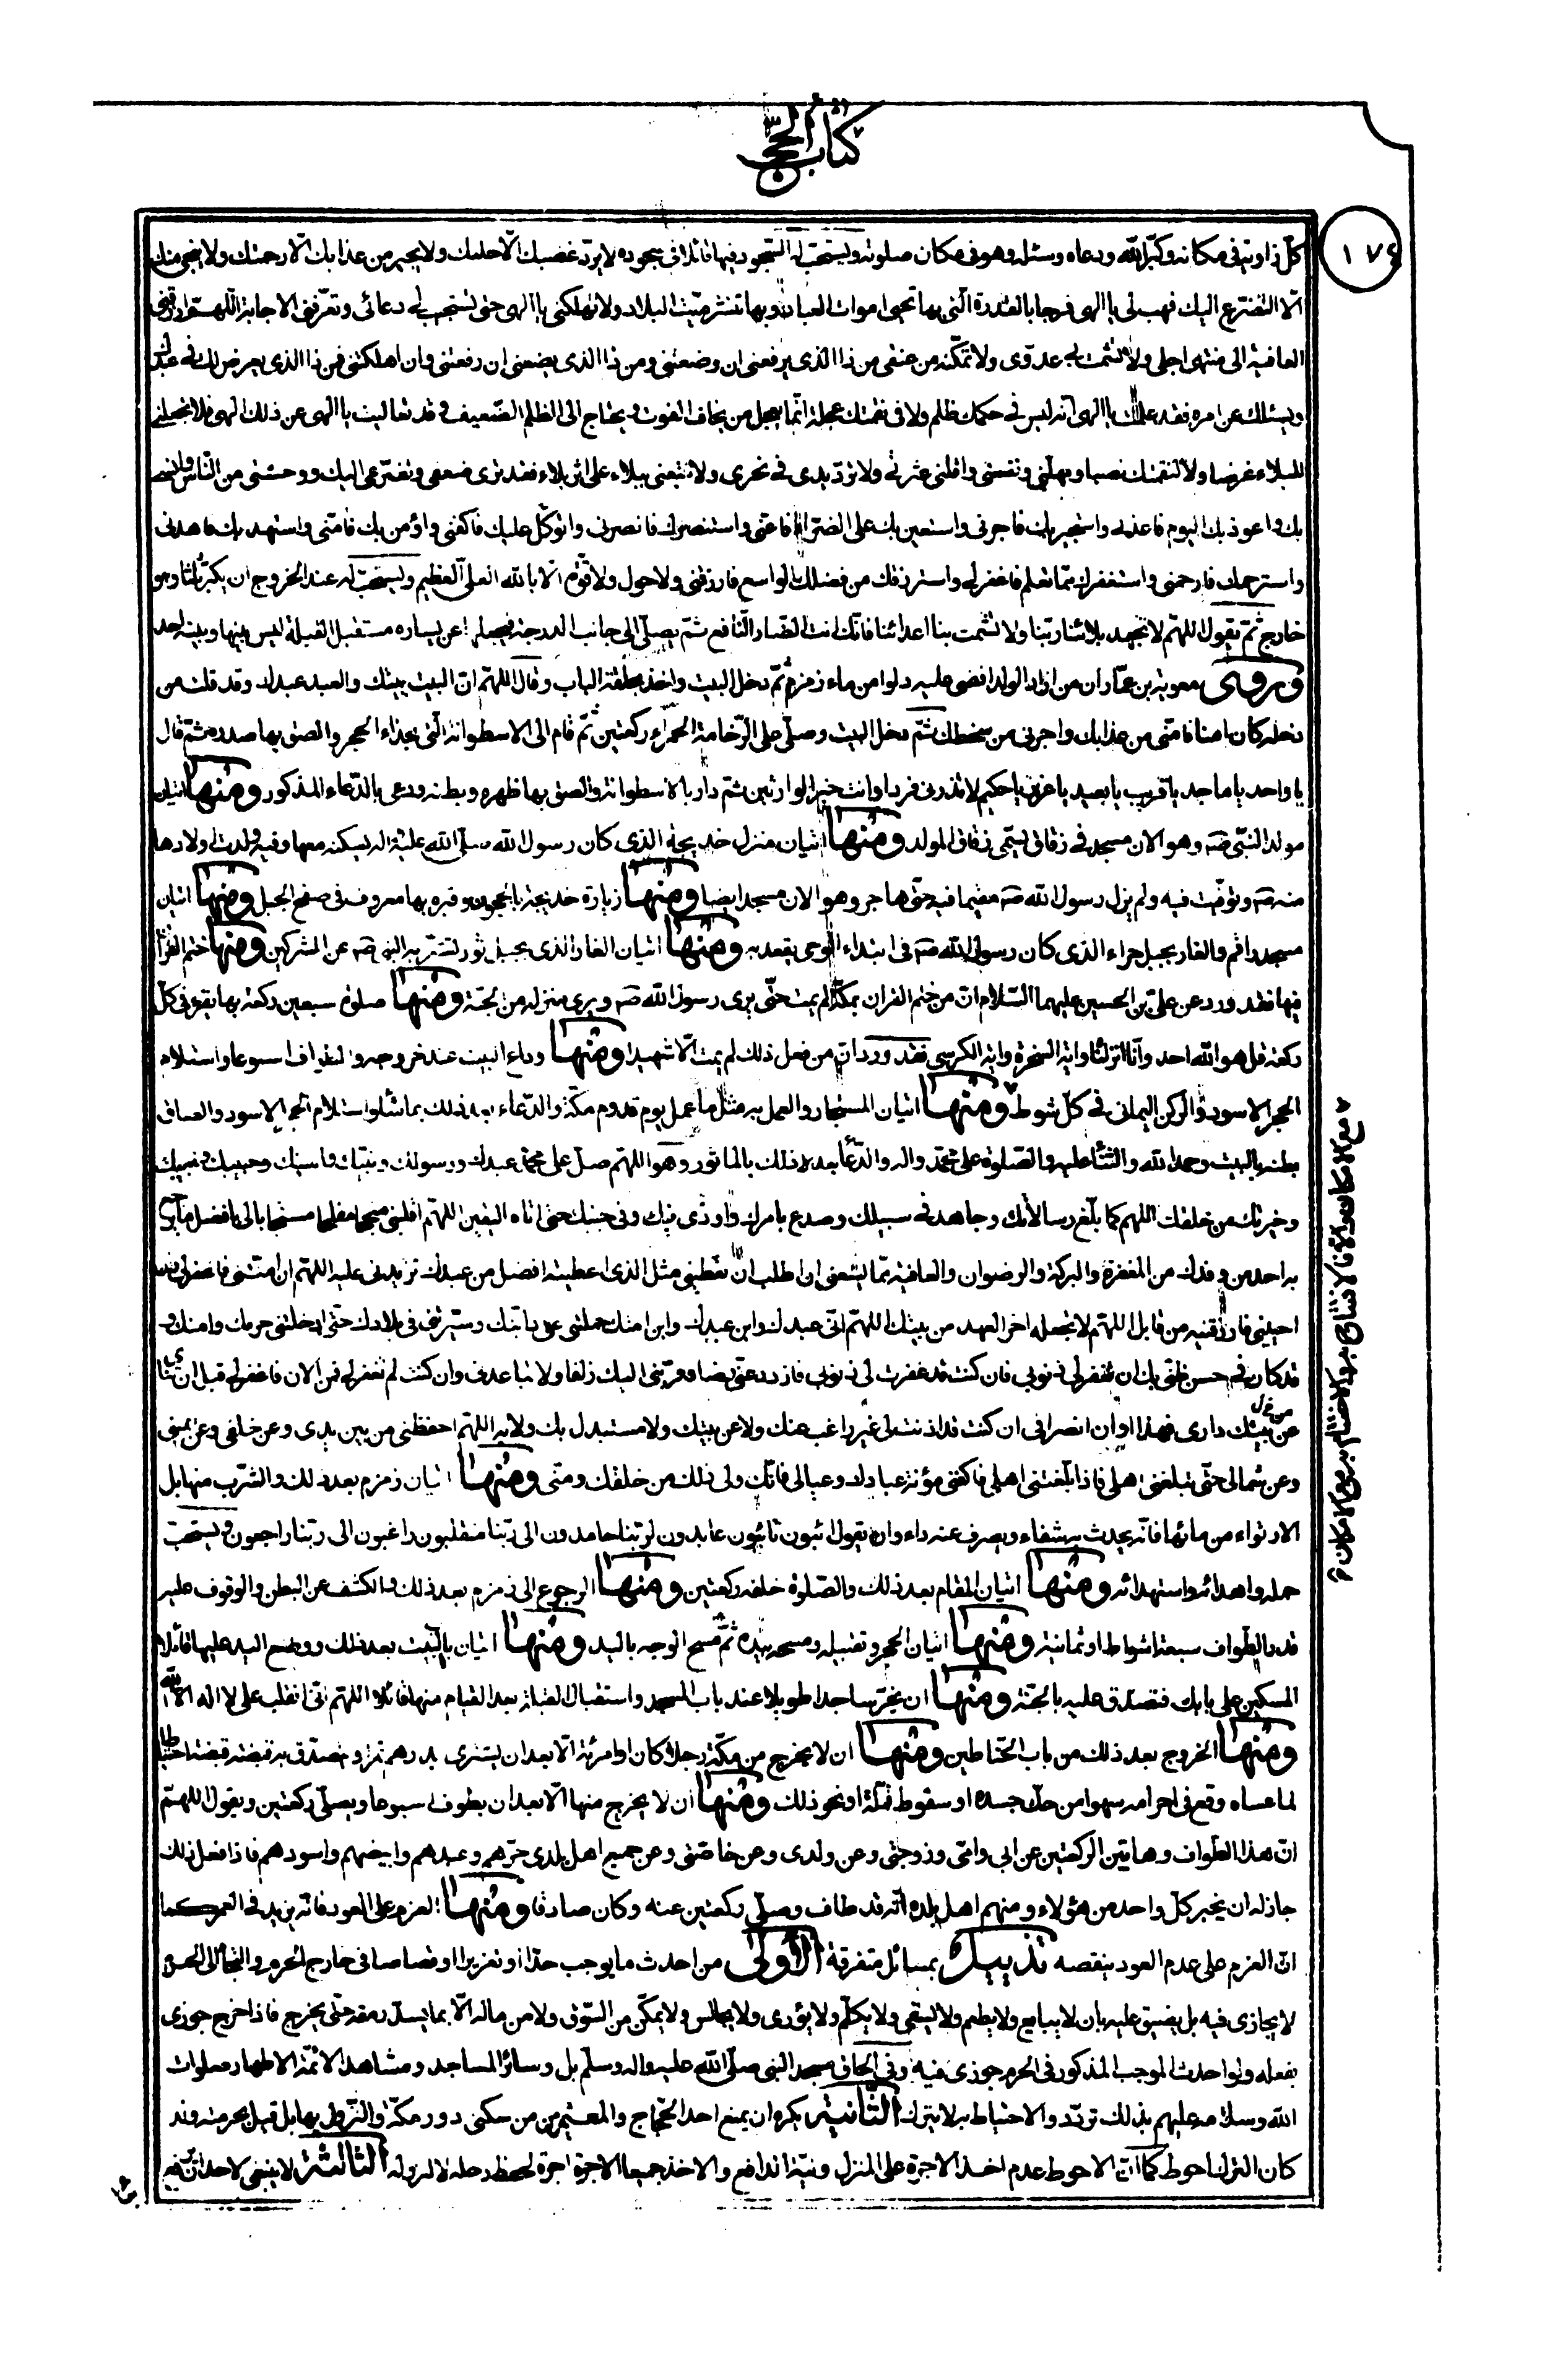 كتاب الحج
١٧٤
كلّ زاوية في مكانه وكبّر الله ودعاه وسئله وهو في مكان صلوته ويستحبّ له السّجود فيها قائلا في سجوده لا يردّ غضبك الّا حلمك ولا يجير من عذابك الّا رحمتك ولا ينجي منك
الّا التّضرّع اليك فهب لى يا الهى فرجا بالقدرة الّتى بها تحيى اموات العباد وبها تنشر ميّت البلاد ولا تهلكنى يا الهى حتى تستجيب لى دعائى وتعرّفنى الاجابة اللّهمّ ارزقنى
العافية الى منتهى اجلى ولا تشمت بى عدوّى ولا تمكّنه من عنقى من ذا الذى يرفعنى ان وضعتنى ومن ذا الذى يضعنى ان رفعتنى وان اهلكتنى فمن ذا الذى يعرض لك فى عبدك
ويسئلك عن امره فقد علمت يا الهى انّه ليس فى حكمك ظلم ولا فى نقمتك عجلة انّما يعجل من يخاف الفوت ويحتاج الى الظلم الضّعيف وقد تعاليت يا الهى عن ذلك الهى فلا تجعلنى
للبلاء غرضا ولا لنقمتك نصبا ومهّلنى ونفسنى واقلنى عثرتى ولا تردّ يدى فى نحرى ولا تتبعنى ببلاء على اثر بلاء فقد ترى ضعفى وتضرّعى اليك ووحشتى من النّاس وانسى
بك واعوذ بك اليوم فاعذنى واستجير بك فاجرنى واستعين بك على الضرّاء فاعنّى واستنصرك فانصرنى واتوكّل عليك فاكفنى واؤمن بك فآمنّى واستهديك فاهدنى
واسترحمك فارحمنى واستغفرك ممّا تعلم فاغفر لى واسترزقك من فضلك الواسع فارزقنى ولا حول ولا قوّة الّا بالله العلىّ العظيم ويستحبّ له عند الخروج ان يكبّر ثلثا وهو
خارج ثمّ يقول اللهمّ لا تجهد بلائنا ربّنا ولا تشمت بنا اعدائنا فانّك انت الضّار النّافع ثمّ يصلّى الى جانب الدرجة فيجعلها عن يساره مستقبل القبلة ليس بينها وبينه احد
وروى معوية بن عمّار ان من اراد الولد افضى عليه دلوا من ماء زمزم ثمّ دخل البيت واخذ بحلقة الباب وقال اللهمّ انّ البيت بيتك والعبد عبدك وقد قلت من
دخله كان امنا فآمنّى من عذابك واجرنى من سخطك ثمّ دخل البيت وصلّى على الرّخامة الحمراء ركعتين ثمّ قام الى الاسطوانة الّتى بحذاء الحجر والصق بها صدره ثمّ قال
يا واحد يا ماجد يا قريب يا بعيد يا عزيز يا حكيم لا تذرنى فردا وانت خير الوارثين ثمّ دار بالاسطوانة والصق بها ظهره وبطنه ودعى بالدّعاء المذكور ومنها اتيان
مولد النّبىّ صم وهو الان مسجد فى زقاق يسمّى زقاق المولد ومنها اتيان منزل خديجة الذى كان رسول الله صلّى الله عليه واله يسكنه معها وفيه ولدت اولادها
منه صم وتوفّت فيه ولم يزل رسول الله صم مقيما فيه حتّى هاجر وهو الان مسجد ايضا ومنها زيارة خديجة بالحجون وقبره بها معروف فى صفح الجبل ومنها اتيان
مسجد راقم والغار بجبل حراء الذى كان رسول الله صم فى ابتداء الوحى يتعبد به ومنها اتيان الغار الذى بجبل ثور تستّر به النّبى صم عن المشركين ومنها ختم القرآن
فيها فقد ورد عن علىّ بن الحسين عليهما السّلام انّ من ختم القران بمكّة لم يمت حتّى يرى رسول الله صم ويرى منزله من الجنّة ومنها صلوة سبعين ركعة بها يقرء فى كلّ
ركعة قل هو الله احد وانّا انزلنا واية السخرة واية الكرسى فقد ورد انّ من فعل ذلك لم يمت الّا شهيدا ومنها وداع البيت عند خروجه والطواف اسبوعا واستلام
الحجر الاسود والركن اليمانى فى كلّ شوط ومنها اتيان المستجار والعمل به مثل ما عمل يوم قدوم مكّة والدّعاء بعد ذلك بما شاء واستلام الحجر الاسود والصاق
بطنه بالبيت وحمد الله والثّناء عليه والصّلوة على محمّد واله والدّعاء بعد ذلك بالماثور وهو اللهمّ صلّ على محمّد عبدك ورسولك ونبيّك وامينك وحبيبك ونجيبك
وخيرتك من خلقك اللهمّ كما بلّغ رسالاتك وجاهد فى سبيلك وصدع بامرك واوذى فيك وفى جنبك حتى اتاه اليقين اللهمّ اقلبنى منجحا مفلحا مستجابا لى بافضل ما يرجع
به احد من وفدك من المغفرة والبركة والرضوان والعافية ممّا يسعنى ان اطلب ان تعطينى مثل الذى اعطيته افضل من عبدك تزيدنى عليه اللهمّ ان امتّنى فاغفر لى وان
احييتنى فارزقنيه من قابل اللهمّ لا تجعله اخر العهد من بيتك اللهمّ انّى عبدك وابن عبدك وابن امتك حملتنى على دابّتك وسيّرتنى فى بلادك حتى ادخلتنى حرمك وامنك و
قد كان فى حسن ظنّى بك ان تغفر لى ذنوبى فان كنت قد غفرت لى ذنوبى فازدد عنّى رضا وقرّبنى اليك زلفا ولا تباعدنى وان كنت لم تغفر لى فمن الان فاغفر لى قبل ان تنأى
عن بيتك دارى فهذا اوان انصرافى ان كنت قد اذنت لى غير راغب عنك ولا عن بيتك ولا مستبدل بك ولا به اللهمّ احفظنى من بين يدى وعن خلفى وعن يمينى
وعن شمالى حتّى تبلغنى اهلى فاذا بلّغتنى اهلى فاكفنى مؤنة عبادك وعيالى فانّك ولى ذلك من خلقك ومنّى ومنها اتيان زمزم بعد ذلك والشّرب منها بل
الارتواء من مائها فانّه يحدث به شفاء ويصرف عنه داء وان يقول ائبون تائبون عابدون لربّنا حامدون الى ربّنا منقلبون راغبون الى ربّنا راجعون ويستحبّ
حمله واهدائه واستهدائه ومنها اتيان المقام بعد ذلك والصّلوة خلفه ركعتين ومنها الرجوع الى زمزم بعد ذلك والكشف عن البطن والوقوف عليه
قدر الطّواف سبعة اشواط او ثمانية ومنها اتيان الحجر وتقبيله ومسحه بيده ثمّ مسح الوجه باليد ومنها اتيان باب البيت بعد ذلك ووضع اليد عليها قائلا
المسكين على بابك فتصدّق عليه بالجنّة ومنها ان يخرّ ساجدا طويلا عند باب المسجد واستقبال القبلة بعد القيام منها قائلا اللهمّ انّى انقلب على لا اله الّا الله
ومنها الخروج بعد ذلك من باب الحنّاطين ومنها ان لا يخرج من مكّة رجلا كان او امرئة الّا بعد ان يشترى بدرهم تمرا ويتصدّق به قبضة قبضة احتياطا
لما عساه وقع فى احرامه سهوا من حكّ جسده او سقوط قملة او نحو ذلك ومنها ان لا يخرج منها الّا بعد ان يطوف اسبوعا ويصلّى ركعتين ويقول اللهمّ
انّ هذا الطّواف وهاتين الركعتين عن ابى وامّى وزوجتى وعن ولدى وعن خاصّتى وعن جميع اهل بلدى حرّهم وعبدهم وابيضهم واسودهم فاذا فعل ذلك
جاز له ان يخبر كلّ واحد من هؤلاء ومنهم اهل بلده انّه قد طاف وصلّى ركعتين عنه وكان صادقا ومنها العزم على العود فانّه يزيد فى العمر كما
انّ العزم على عدم العود ينقصه تذييل بمسائل متفرقة الاولى من احدث ما يوجب حدّا او تعزيرا او قصاصا فى خارج الحرم والتجأ الى الحرم
لا يجازى فيه بل يضيق عليه بان لا يبايع ولا يطعم ولا يسقى ولا يكلّم ولا يؤوى ولا يجالس ولا يمكّن من السّوق ولا من ماله الّا بما يسدّ رمقه حتّى يخرج فاذا خرج جوزى
بفعله ولو احدث الموجب المذكور فى الحرم جوزى فيه وفى الحاق مسجد النبى صلّى الله عليه واله وسلّم بل وسائر المساجد ومشاهد الائمّة الاطهار صلوات
الله وسلامه عليهم بذلك تردّد والاحتياط به لا يترك الثّانية يكره ان يمنع احد الحّجاج والمعتمرين من سكنى دور مكّة والنّزول بها بل قيل بحرمته وقد
كان الترك احوط كما انّ الاحوط عدم اخذ الاجرة على المنزل ونيّة الدافع والاخذ جميعا الاجرة اجرة لحفظ رحله لا لنزوله الثالثة لا ينبغى لاحد ان